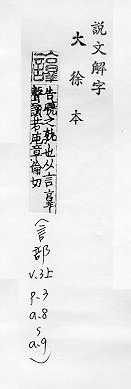 說文解字
大徐本
告曉之孰也从言𦎫
聲讀若庉章倫切
(言部
v.3上
p.3
a.8
s
a.9)